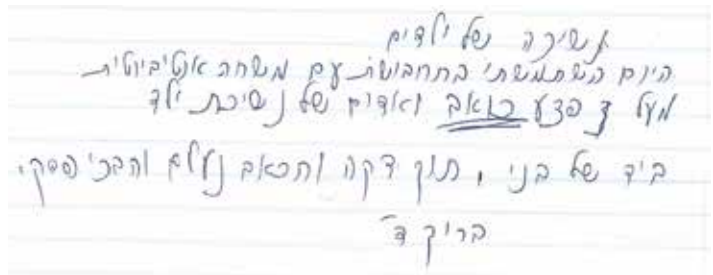 נשיכה של ילדים
היום השתמשתי בתחבושת עם משחה אנטיביוטית
מעל פצע כואב ואדום של נשיכת ילד
ביד של בני, תוך דקה והכאב נעלם והבכי פסק.
בריק ד'